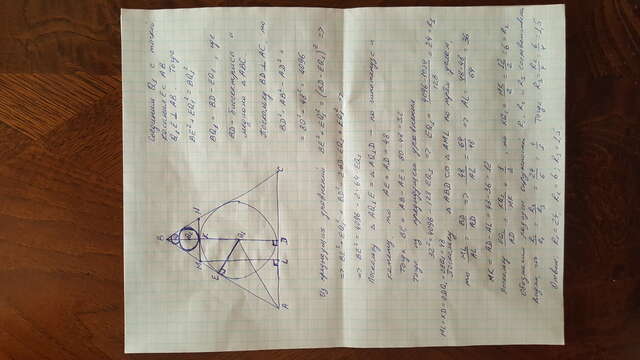 B
Q₂
M
N
K
E
Q₁
A
L
D
C
Соединим Q₁ с точкой
касания E с AB
Q₁E ⊥ AB. Тогда
BE² + EQ₁² = BQ₁²
BQ₁ = BD - EQ₁, где
BD - биссектриса и
медиана △ABC.
Поскольку BD ⊥ AC, то
BD² = AB² - AD² =
= 80² - 48² = 4096
Из предыдущих уравнений BE² + EQ₁² = (BD - EQ₁)² ⇒
⇒ BE² = 4096 - 2·64·EQ₁
Поскольку △AQ₁E = △AQ₁D - по гипотенузе и
катету, то AE = AD = 48
Тогда BE = AB - AE = 80 - 48 = 32
Тогда из предыдущего уравнения
32² = 4096 - 128 EQ₁ ⇒ EQ₁ = (4096 - 1024)/128 = 24 = R₁
ML = KD = 2DQ₁ = 2EQ₁ = 48
Поскольку △ABD ∾ △AML по трём углам,
то ML/AL = BD/AD ⇒ 48/AL = 64/48 ⇒ AL = 48·48/64 = 36
MK = AD - AL = 48 - 36 = 12
Поскольку EQ₁/AD = KQ₂/MK = 1/2, то KQ₂ = MK/2 = 12/2 = 6 = R₂
Обозначим радиусы окружностей R₁, R₂ и R₃ соответственно
Тогда R₃ = R₂/4 = 6/4 = 1,5
Ответ: R₁ = 24, R₂ = 6; R₃ = 1,5